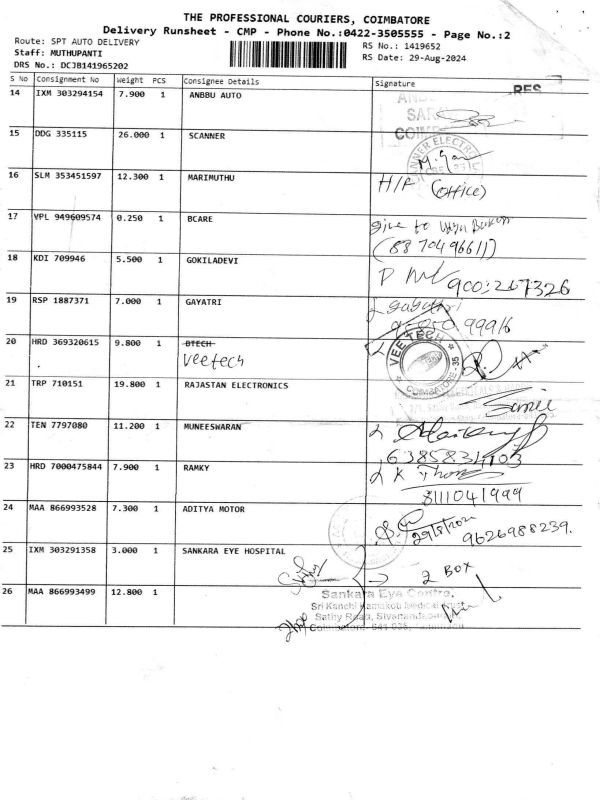 THE PROFESSIONAL COURIERS, COIMBATORE
Delivery Runsheet - CMP - Phone No.:0422-3505555 - Page No.:2
Route: SPT AUTO DELIVERY
RS No.: 1419652
Staff: MUTHUPANTI
RS Date: 29-Aug-2024
DRS No.: DCJB141965202
S No Consignment No Weight PCS Consignee Details Signature
14 IXM 303294154 7.900 1 ANBBU AUTO
15 DDG 335115 26.000 1 SCANNER
16 SLM 353451597 12.300 1 MARIMUTHU
H/F (office)
17 VPL 949609574 0.250 1 BCARE
give to
(88 70496611)
18 KDI 709946 5.500 1 GOKILADEVI
19 RSP 1887371 7.000 1 GAYATRI
gayatri
20 HRD 369320615 9.800 1 DTECH
veetech
VEE TECH
COIMBATORE-35
21 TRP 710151 19.800 1 RAJASTAN ELECTRONICS
22 TEN 7797080 11.200 1 MUNEESWARAN
6385834103
23 HRD 7000475844 7.900 1 RAMKY
8111041999
24 MAA 866993528 7.300 1 ADITYA MOTOR
9626988239.
25 IXM 303291358 3.000 1 SANKARA EYE HOSPITAL
2 BOX
26 MAA 866993499 12.800 1
Sankara Eye Centre,
Sri Kanchi Kamakoti Medical Trust
Sathy Road,